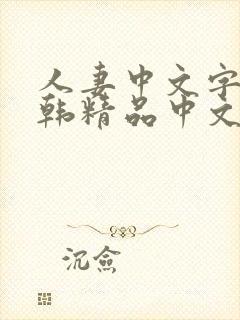 人妻中文字
韩精品中文
沉俭